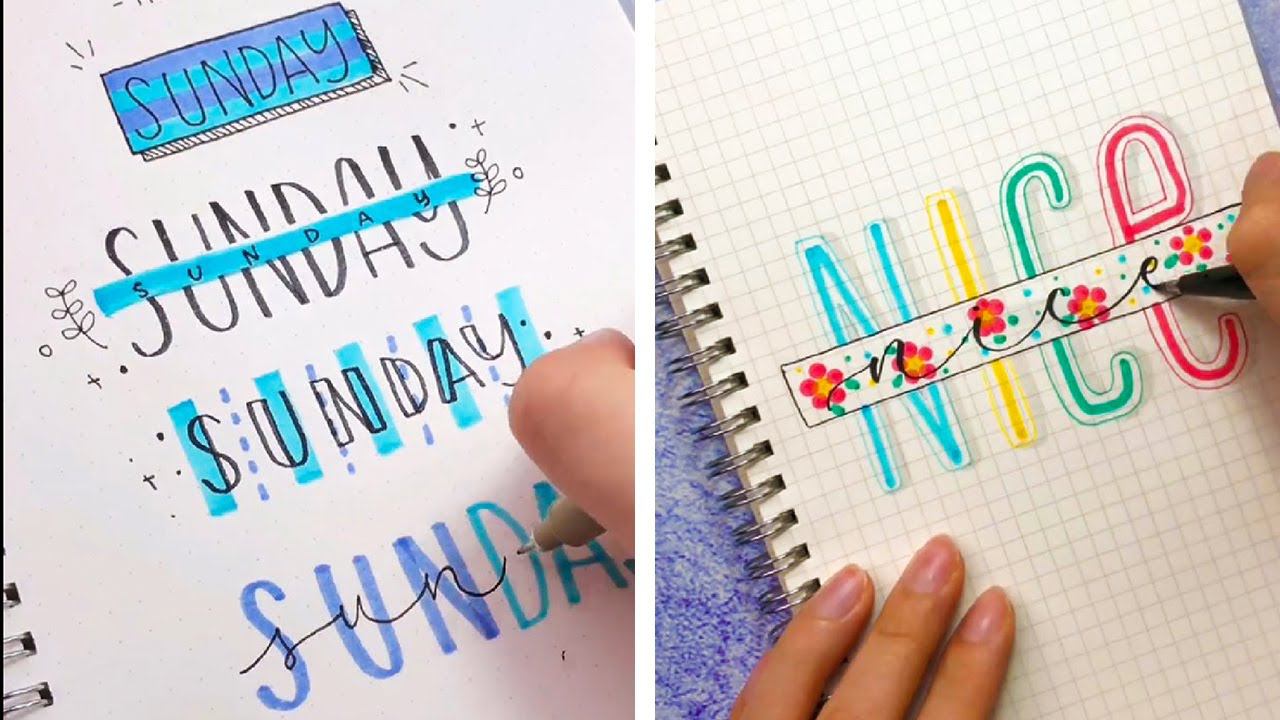 SUNDAY
SUNDAY
SUNDAY
SUNDAY
SUNDA
sun
NICE
nice